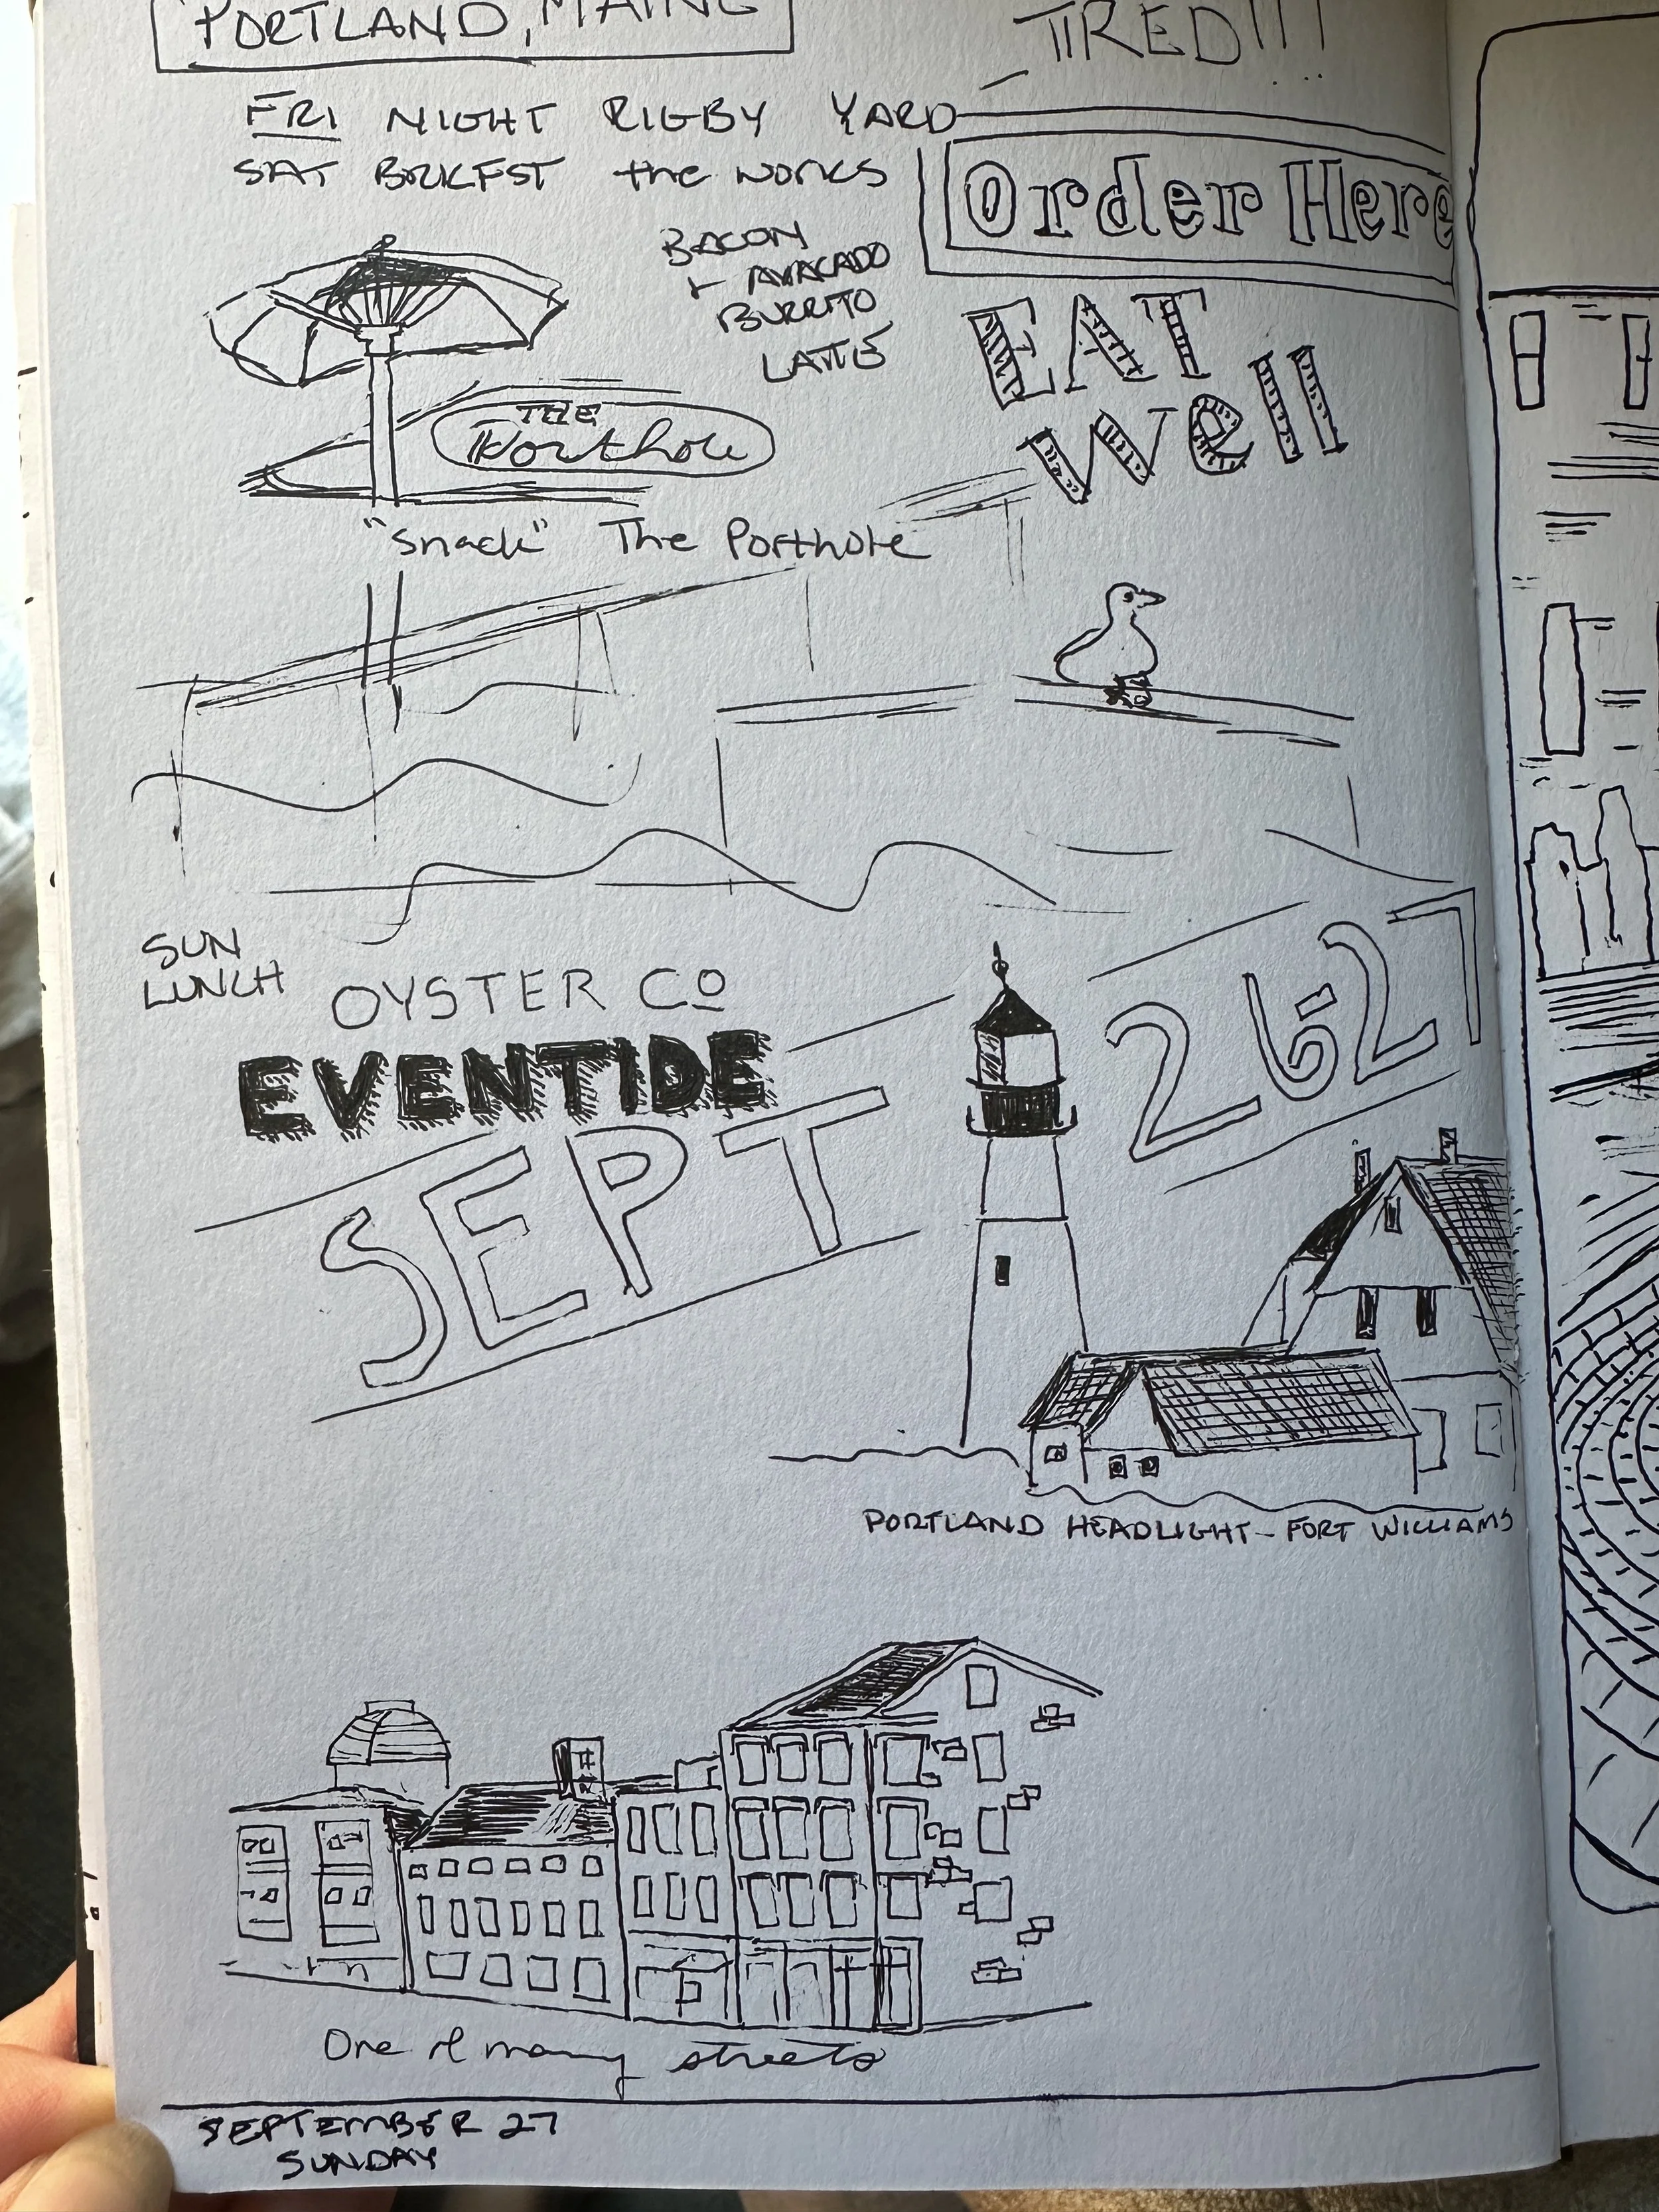 PORTLAND, MAINE
TIRED!!!
FRI NIGHT RIGBY YARD
SAT BRKFST the WORKS
BACON
+ AVACADO
BURRITO
LATTE
Order Here
EAT
Well
THE
Porthole
"Snack" The Porthole
SUN
LUNCH
OYSTER CO
EVENTIDE
SEPT 26-27
PORTLAND HEADLIGHT - FORT WILLIAMS
One of many streets
SEPTEMBER 27
SUNDAY